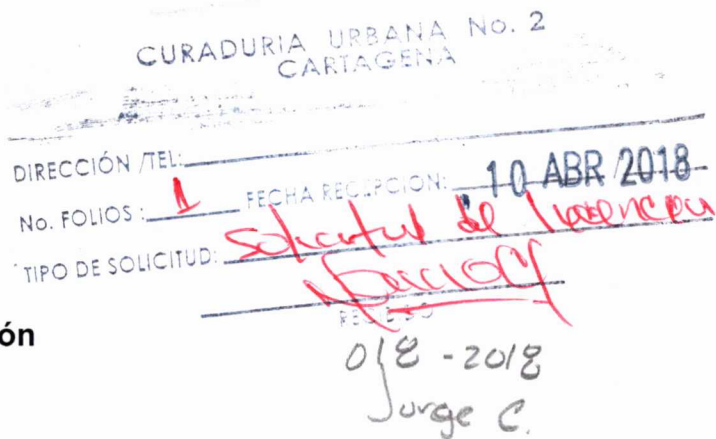 CURADURIA URBANA No. 2
CARTAGENA
DIRECCIÓN /TEL:
No. FOLIOS: 1 FECHA RECEPCION: 10 ABR 2018
TIPO DE SOLICITUD: Solicitud de
RECIBIDO
ón
018-2018
Jorge C.